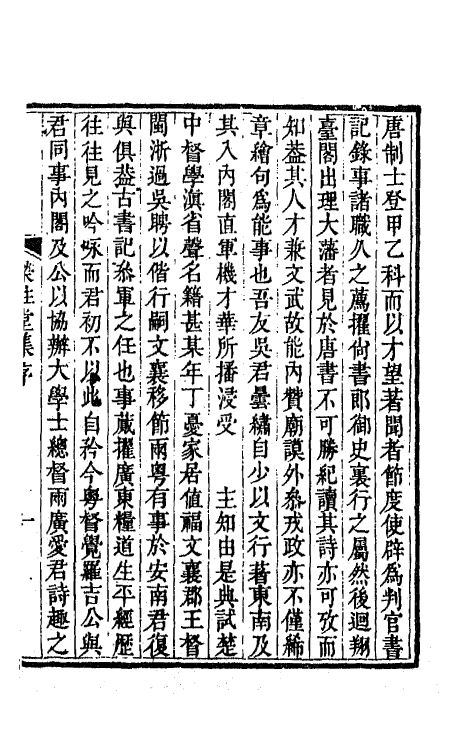 唐制士登甲乙科而以才望著聞者節度使辟爲判官書
記錄事諸職久之薦擢尙書郎御史裏行之屬然後迴翔
臺閣出理大藩者見於唐書不可勝紀讀其詩亦可攷而
知葢其人才兼文武故能內贊廟謨外叅戎政亦不僅絺
章繪句爲能事也吾友吳君曇繡自少以文行著東南及
其入內閣直軍機才華所播浸受　主知由是典試楚
中督學滇省聲名籍甚某年丁憂家居値福文襄郡王督
閩浙過吳聘以偕行嗣文襄移節兩粵有事於安南君復
與俱葢古書記叅軍之任也事蕆擢廣東糧道生平經歷
往往見之吟咏而君初不以此自矜今粵督覺羅吉公與
君同事內閣及公以協辦大學士總督兩廣愛君詩趣之
堂集序
一